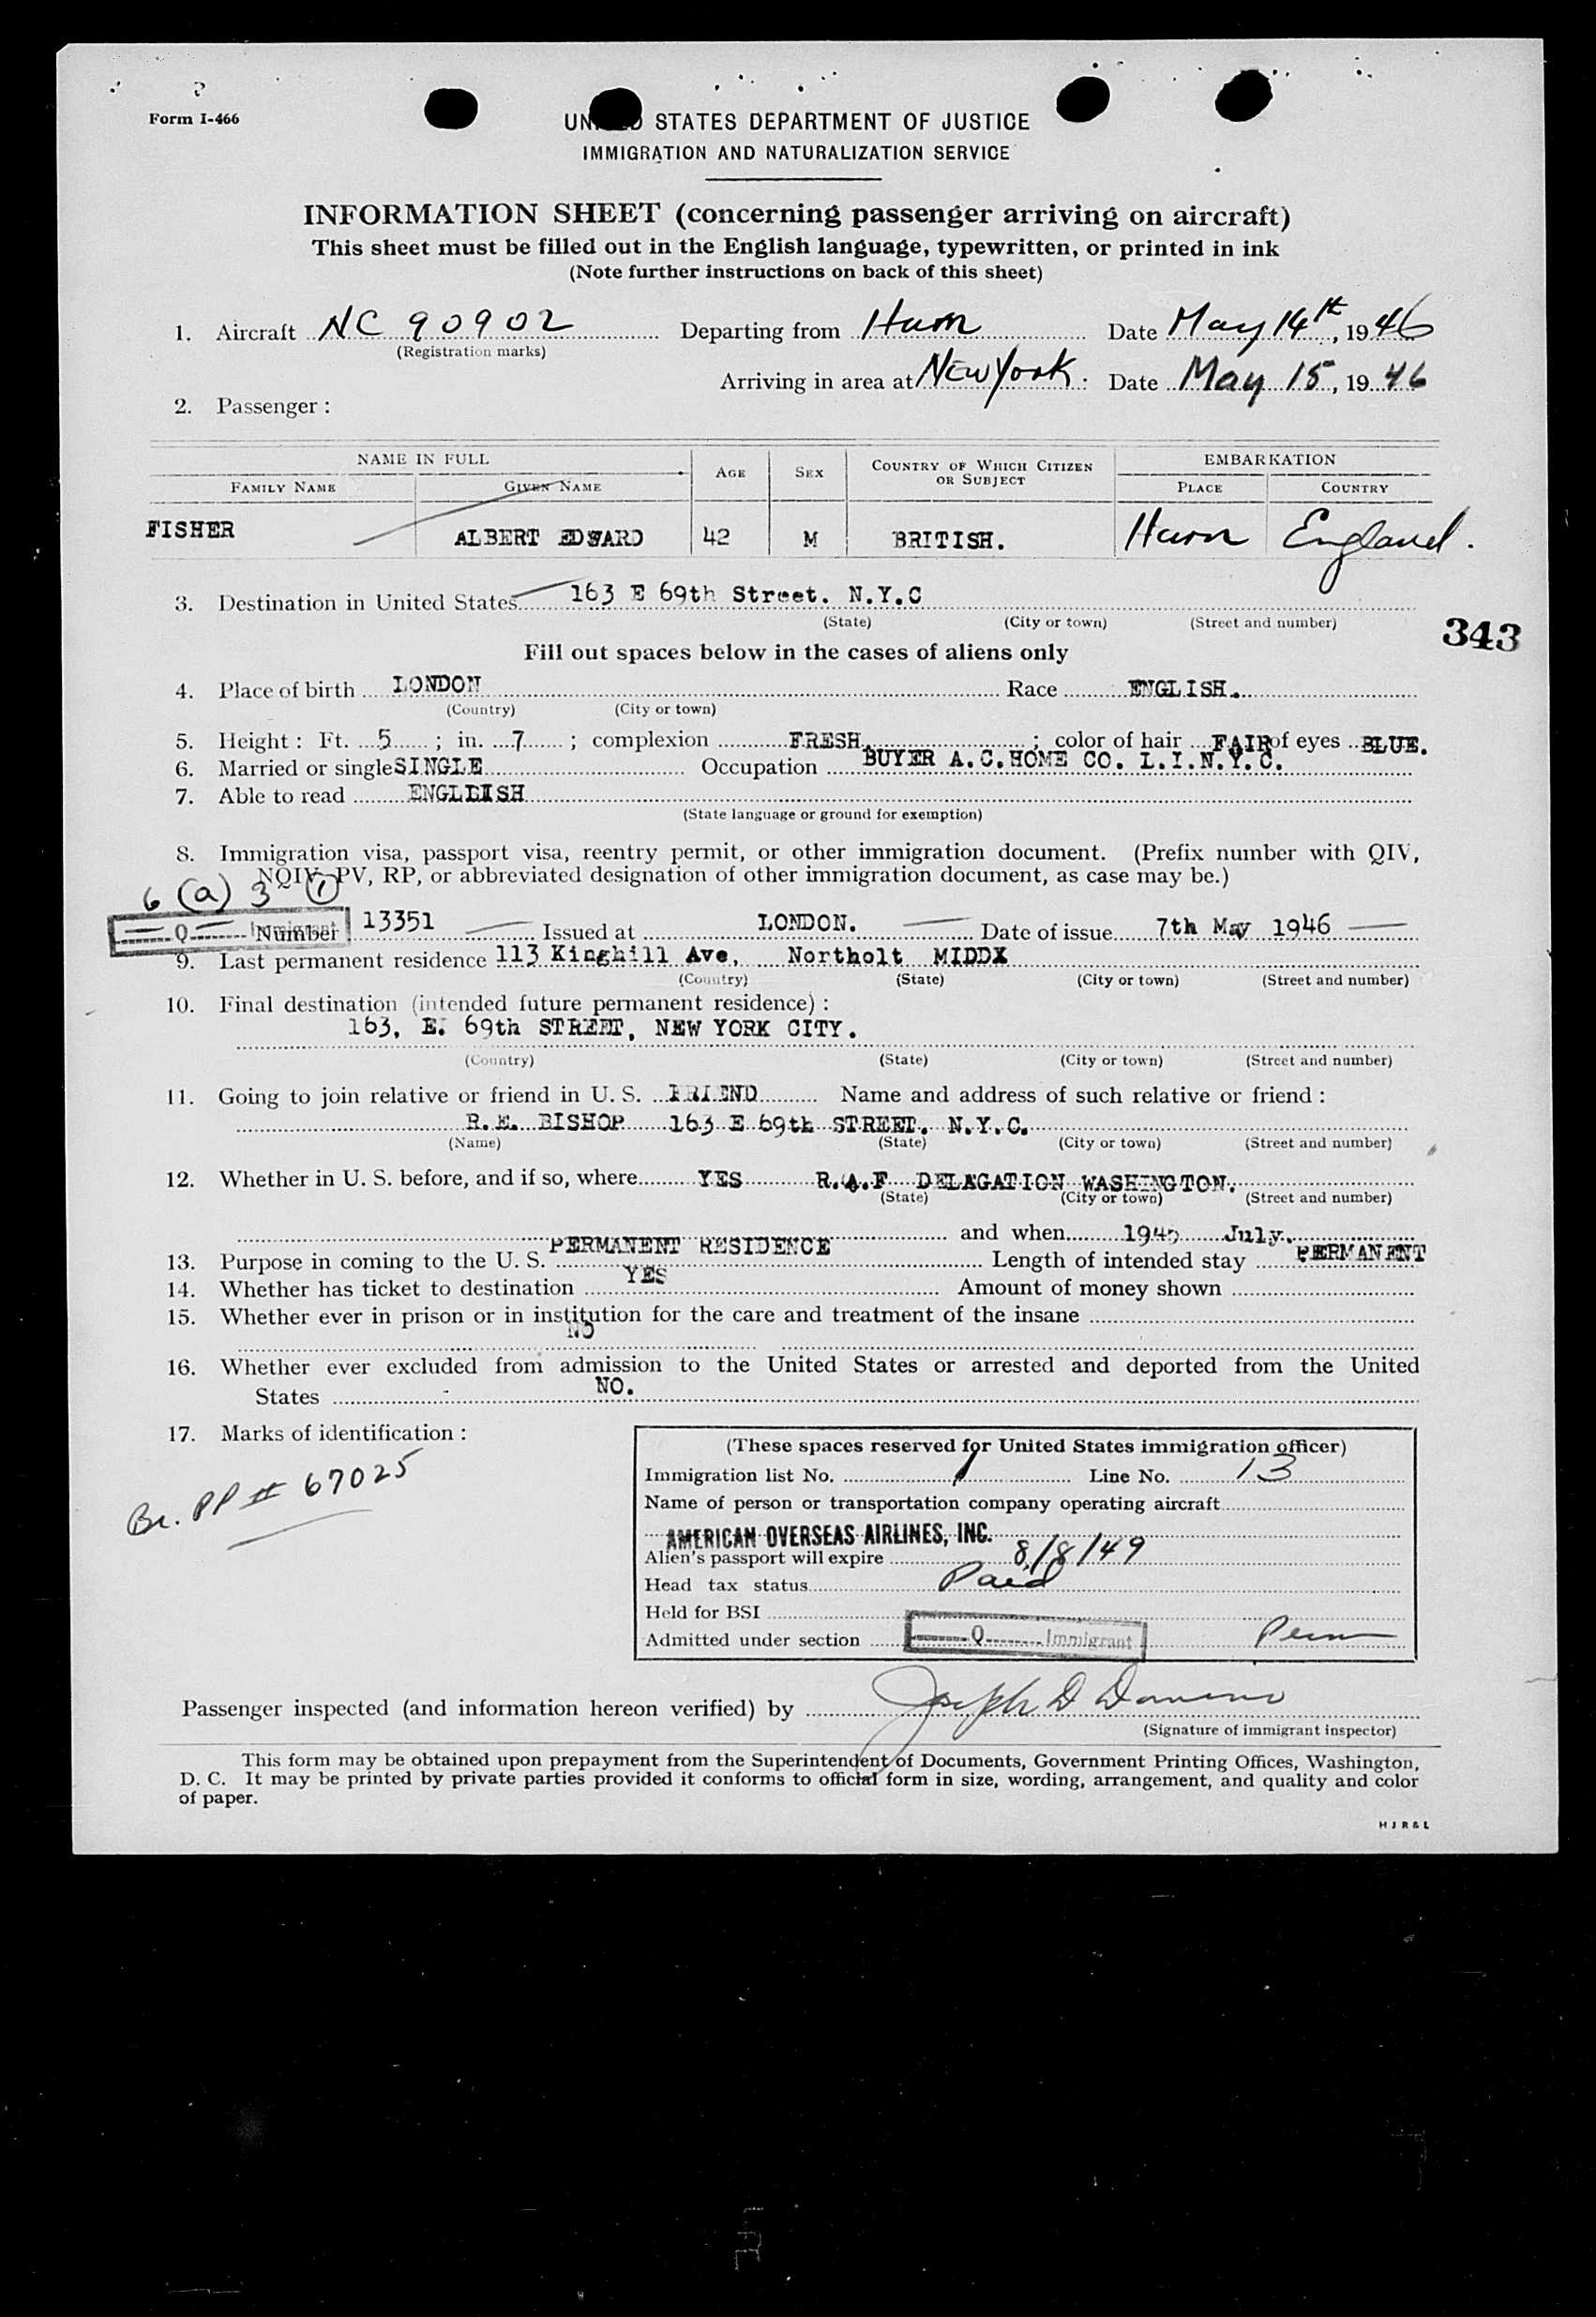 Form I-466
UNITED STATES DEPARTMENT OF JUSTICE
IMMIGRATION AND NATURALIZATION SERVICE
INFORMATION SHEET (concerning passenger arriving on aircraft)
This sheet must be filled out in the English language, typewritten, or printed in ink
(Note further instructions on back of this sheet)
1. Aircraft NC 90902 Departing from Hurn Date May 14th, 1946
(Registration marks)
Arriving in area at New York Date May 15, 1946
2. Passenger:
NAME IN FULL AGE SEX COUNTRY OF WHICH CITIZEN OR SUBJECT EMBARKATION
FAMILY NAME GIVEN NAME PLACE COUNTRY
FISHER ALBERT EDWARD 42 M BRITISH. Hurn England.
3. Destination in United States 163 E 69th Street. N.Y.C
(State) (City or town) (Street and number)
343
Fill out spaces below in the cases of aliens only
4. Place of birth LONDON Race ENGLISH.
(Country) (City or town)
5. Height: Ft. 5; in. 7; complexion FRESH; color of hair FAIR of eyes BLUE.
6. Married or single SINGLE Occupation BUYER A.C.HOME CO. L.I.N.Y.C.
7. Able to read ENGLIISH
(State language or ground for exemption)
8. Immigration visa, passport visa, reentry permit, or other immigration document. (Prefix number with QIV,
NQIV, PV, RP, or abbreviated designation of other immigration document, as case may be.)
6 (a) 3 (1)
Q Immigrant
Number 13351 Issued at LONDON. Date of issue 7th May 1946
9. Last permanent residence 113 Kinghill Ave, Northolt MIDDX
(Country) (State) (City or town) (Street and number)
10. Final destination (intended future permanent residence):
163, E. 69th STREET, NEW YORK CITY.
(Country) (State) (City or town) (Street and number)
11. Going to join relative or friend in U. S. FRIEND Name and address of such relative or friend:
R.E. BISHOP 163 E 69th STREET. N.Y.C.
(Name) (State) (City or town) (Street and number)
12. Whether in U. S. before, and if so, where YES R.A.F DELAGATION WASHINGTON.
(State) (City or town) (Street and number)
and when July.
13. Purpose in coming to the U. S. PERMANENT RESIDENCE Length of intended stay PERMANENT
14. Whether has ticket to destination YES Amount of money shown
15. Whether ever in prison or in institution for the care and treatment of the insane
NO
16. Whether ever excluded from admission to the United States or arrested and deported from the United
States NO.
17. Marks of identification:
Br. PP # 67025
(These spaces reserved for United States immigration officer)
Immigration list No. 1 Line No. 13
Name of person or transportation company operating aircraft
AMERICAN OVERSEAS AIRLINES, INC.
Alien's passport will expire 8/8/49
Head tax status Paid
Held for BSI
Admitted under section Q Immigrant Perm
Passenger inspected (and information hereon verified) by Joseph D
(Signature of immigrant inspector)
This form may be obtained upon prepayment from the Superintendent of Documents, Government Printing Offices, Washington,
D. C. It may be printed by private parties provided it conforms to official form in size, wording, arrangement, and quality and color
of paper.
H J R & L